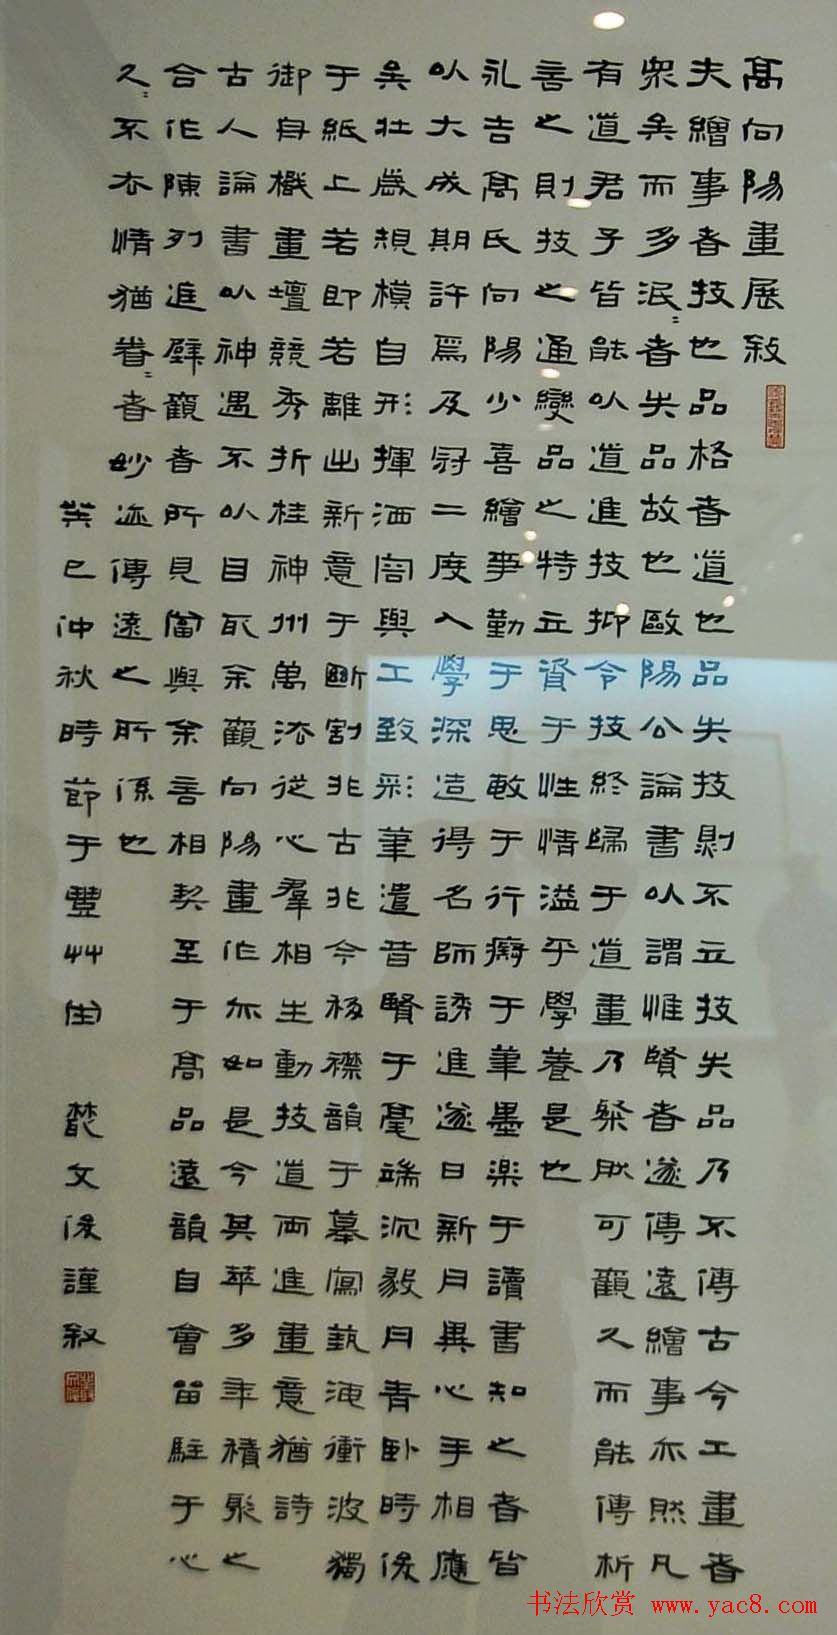 高向陽畫展敘
夫繪事者技也品格者道也品失技則不立技失品乃不傳古今工畫者
眾矣而多泯=者失品故也歐陽公論書以謂惟賢者遂傳遠繪事亦然凡
有道君子皆能以道進技抑令技終歸于道畫乃粲然可觀久而能傳析
言之則技之通變品之特立資于性情溢乎學養是也
永吉高氏向陽少喜繪事勤于思敏于行癖于筆墨樂于讀書知之者皆
以大成期許焉及冠二度入學深造得名師誘進遂日新月異心手相應
矣壯歲規模自形揮洒宕與工致彩筆遣昔賢于毫端沉毅丹青卧時後
于紙上若即若離出新意于斷割非古非今移襟韻于摹寫藝海衝波獨
御舟橫畫壇競秀折桂神州萬法從心群相生動技道兩進畫意猶詩
古人論書以神遇不以目取余觀向陽畫作亦如是今其萃多年積聚之
合作陳列進壁觀者所見當與余言相契至于高品遠韻自會留駐于心
久=不去情猶眷=者妙迹傳遠之所係也
癸巳仲秋時節于豐草堂 叢文俊謹敘
书法欣赏 www.yac8.com